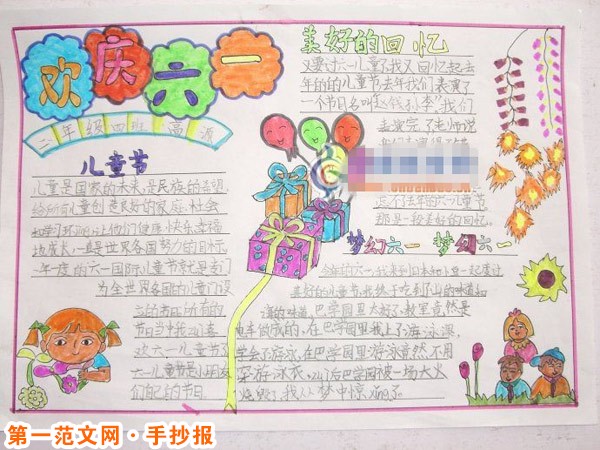 欢庆六一
二年级四班 高源
儿童节
儿童是国家的未来,是民族的希望,
给所有儿童创造良好的家庭、社会
和学习环境,让他们健康、快乐、幸福
地成长,一直是世界各国努力的目标。
一年一度的六一国际儿童节就是专门
为全世界各国的儿童们设
的节日。所有的
节日当中我们喜
欢六一儿童节
六一儿童节是小朋友
们自己的节日。
美好的回忆
又要过六一儿童了我又回忆起去
年的的儿童节去年我们表演了
一个节目名叫“赵钱孙李”我们
表演完了老师说
个去年的六一儿童节
那是一段美好的回忆。
梦幻六一 梦幻六一
今年的六一,我来到日本和小豆一起度过
美好的儿童节,我终于吃到了山的味道和
海的味道,巴学园里太好了,教室竟然是
电车做成的,在巴学园里我上了游泳课,
学会了游泳,在巴学园里游泳竟然不用
穿游泳衣,以后巴学园被一场大火
烧毁了,我从梦中惊喊了。
第一范文网·手抄报